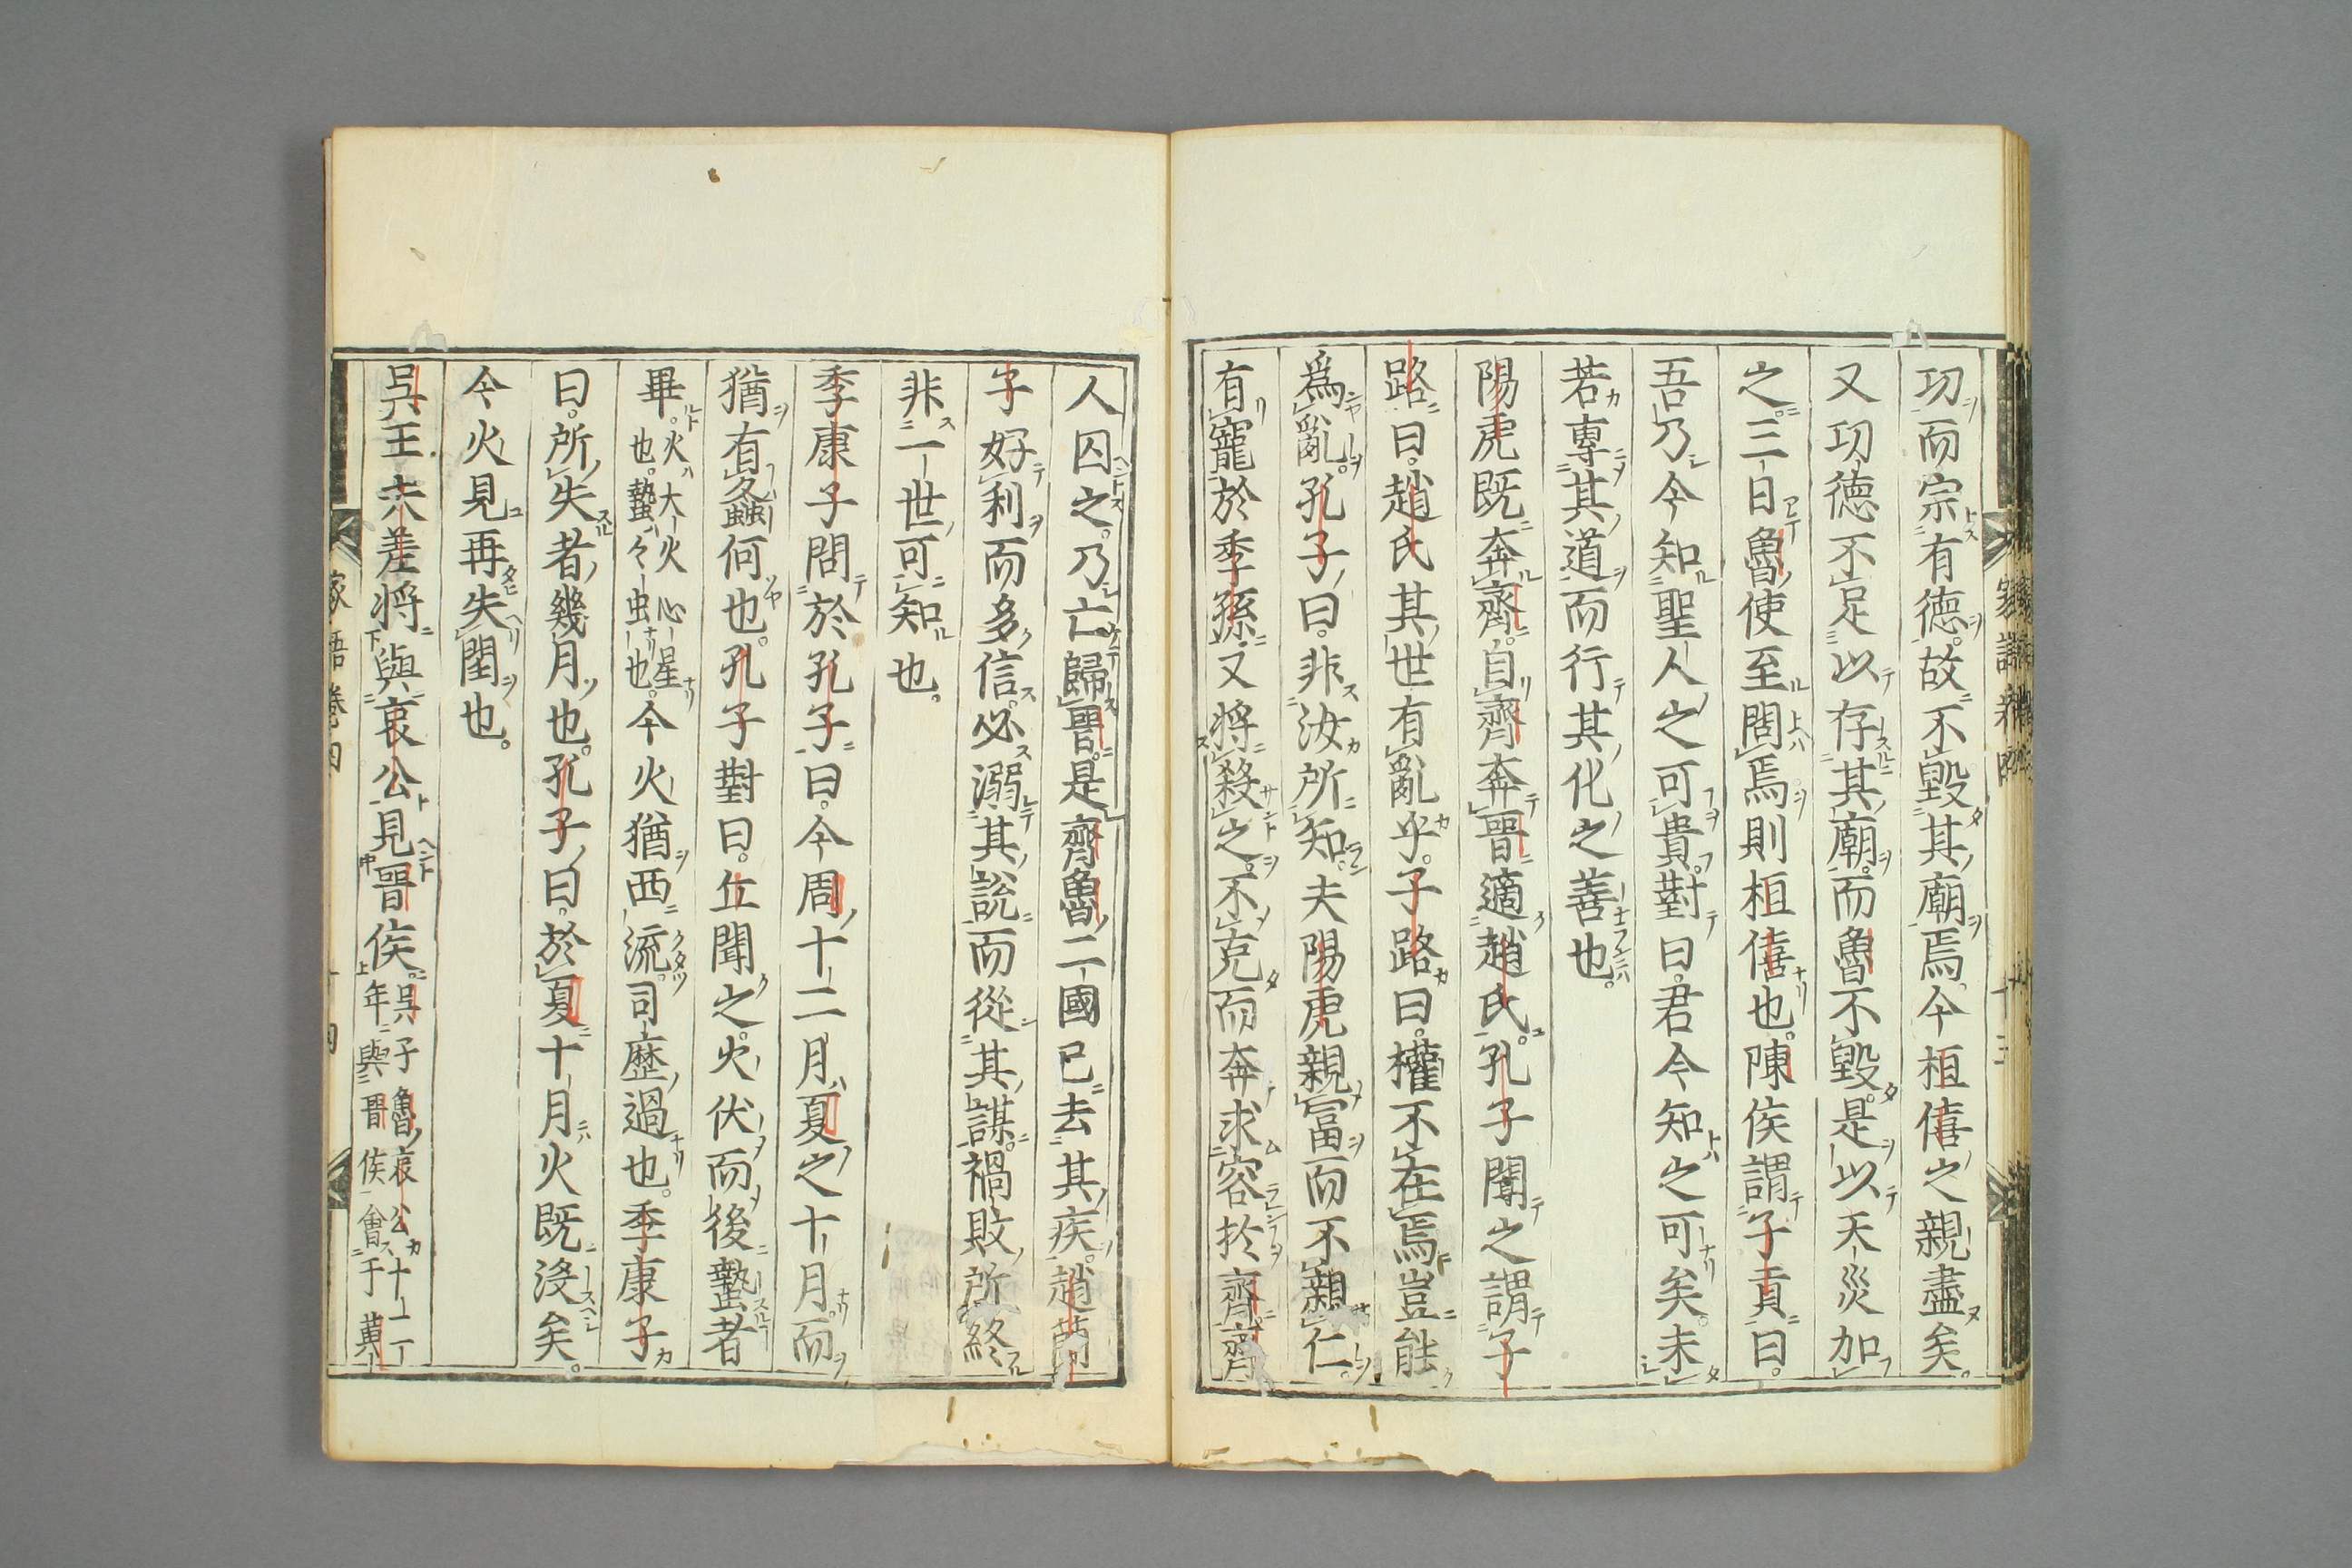 功而宗有德故不毀其廟焉今桓僖之親盡矣
又功德不足以存其廟而魯不毀是以天災加
之三日魯使至問焉則桓僖也陳侯謂子貢曰
吾乃今知聖人之可貴對曰君今知之可矣未
若專其道而行其化之善也
陽虎既奔齊自齊奔晋適趙氏孔子聞之謂子
路曰趙氏其世有亂乎子路曰權不在焉豈能
為亂孔子曰非汝所知夫陽虎親富而不親仁
有寵於季孫又將殺之不克而奔求容於齊齊
人囚之乃亡歸晋是齊魯二國已去其疾趙簡
子好利而多信必溺其說而從其謀禍敗所終
非一世可知也
季康子問於孔子曰今周十二月夏之十月而
猶有螽何也孔子對曰丘聞之火伏而後蟄者
畢火大火心星也蟄蟄虫也今火猶西流司歷過也季康子
曰所失者幾月也孔子曰於夏十月火既沒矣
今火見再失閏也
吳王夫差將與哀公見晋侯吳子魯哀公十二年與晋侯會于黃
家語卷四
十四